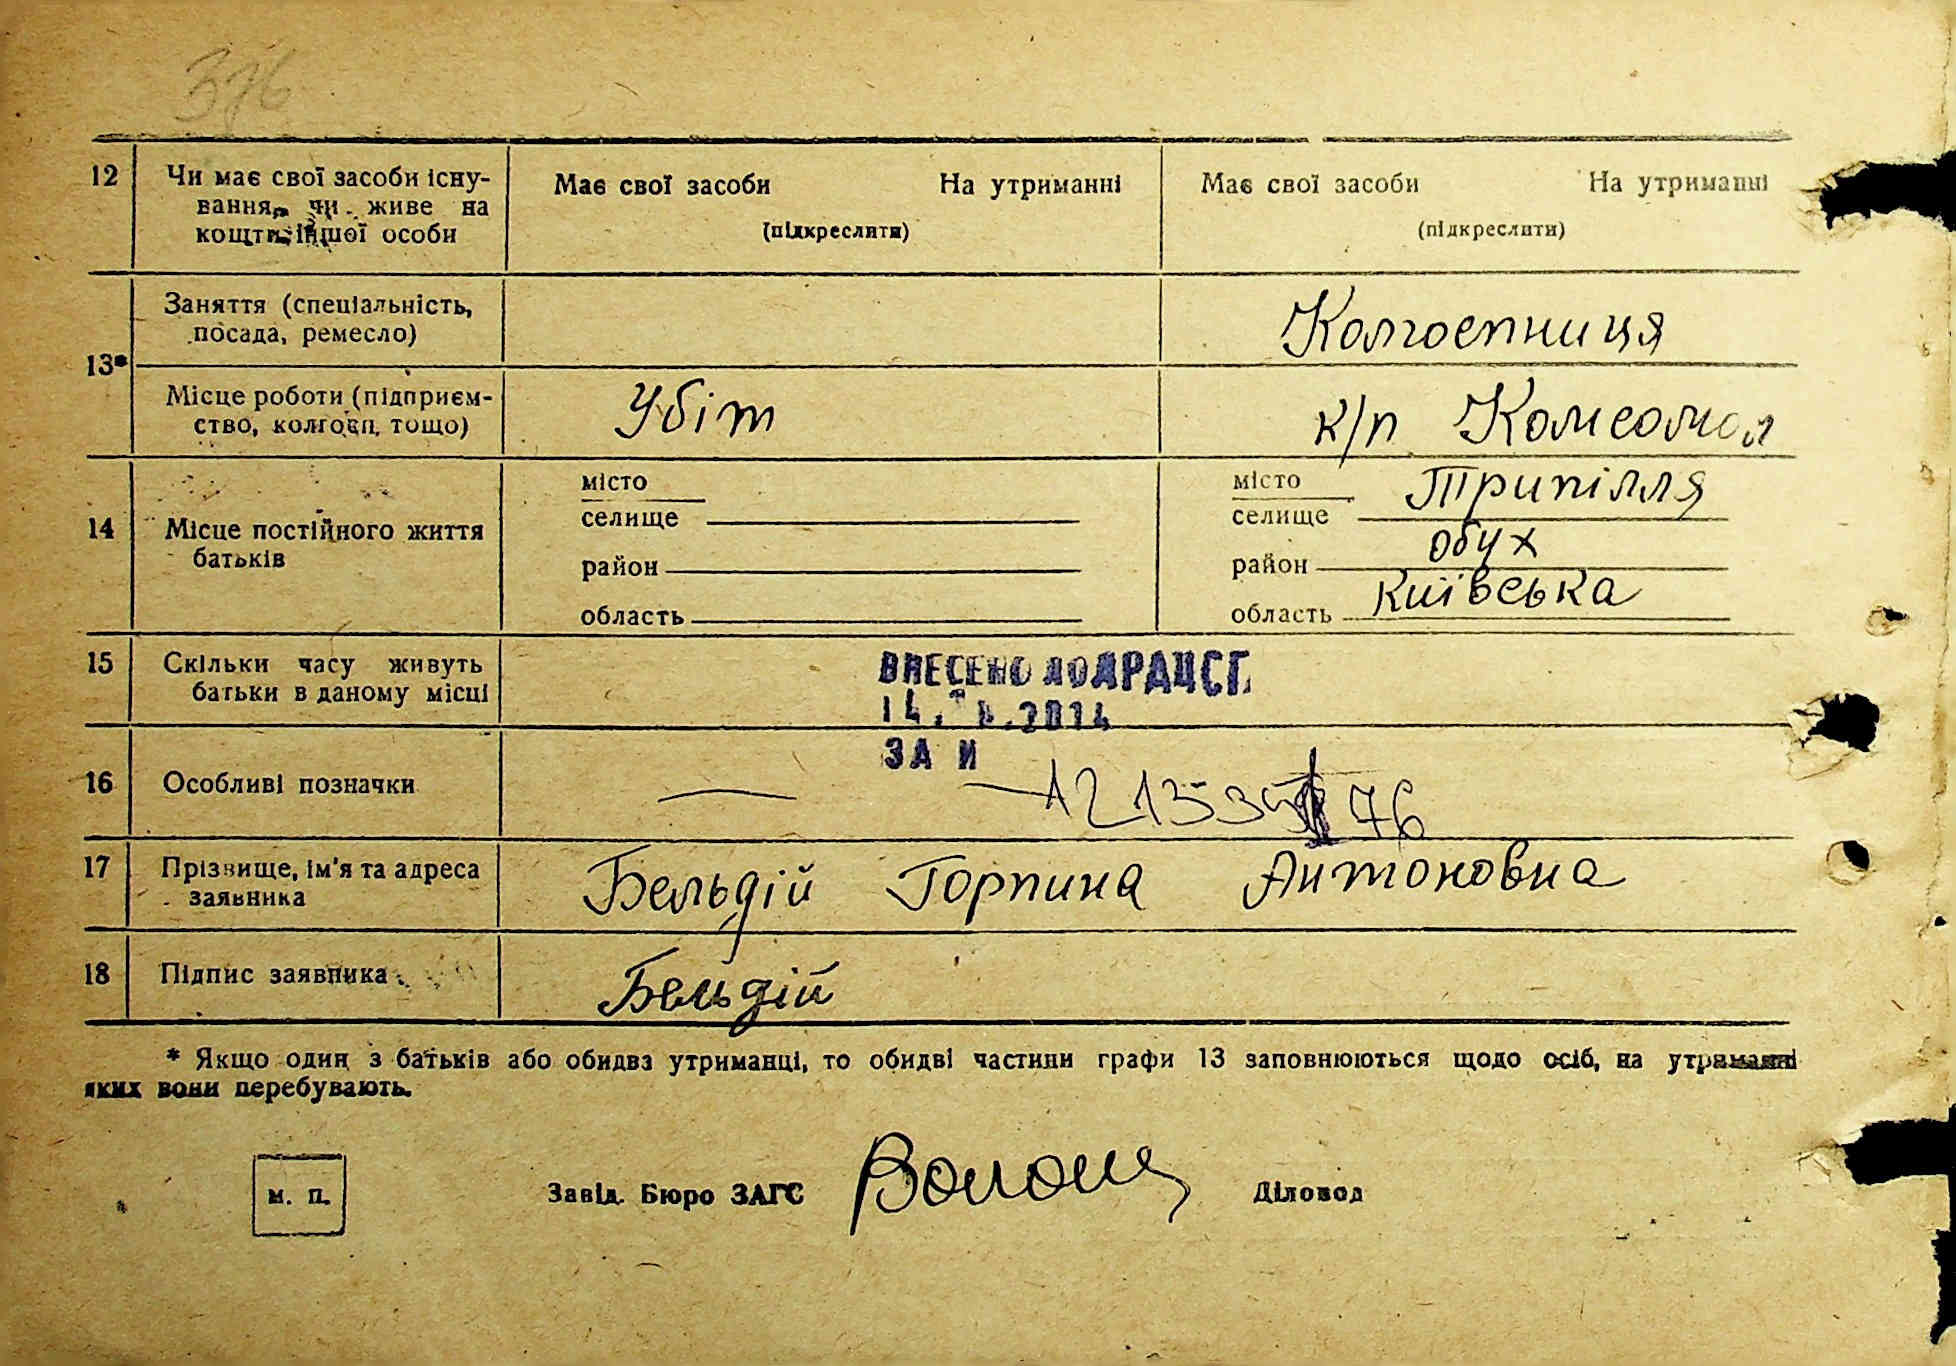 376
12 Чи має свої засоби існу-
вання, чи живе на
кошти іншої особи
Має свої засоби На утриманні
(підкреслити)
Має свої засоби На утриманні
(підкреслити)
13* Заняття (спеціальність,
посада, ремесло)
Колгоспниця
Місце роботи (підприєм-
ство, колгосп, тощо)
Убіт
к/п Комсомол
14 Місце постійного життя
батьків
місто
селище
район
область
місто
селище Трипілля
район Обух
область Київська
15 Скільки часу живуть
батьки в даному місці
ВНЕСЕНО ДО ДРАЦСГ
14. .2014
ЗА И
16 Особливі позначки
—
17 Прізвище, ім'я та адреса
заявника
Бельдій Горпина Антоновна
18 Підпис заявника
Бельдій
* Якщо один з батьків або обидва утриманці, то обидві частини графи 13 заповнюються щодо осіб, на утриманні
яких вони перебувають.
м. п.
Завід. Бюро ЗАГС
Діловод